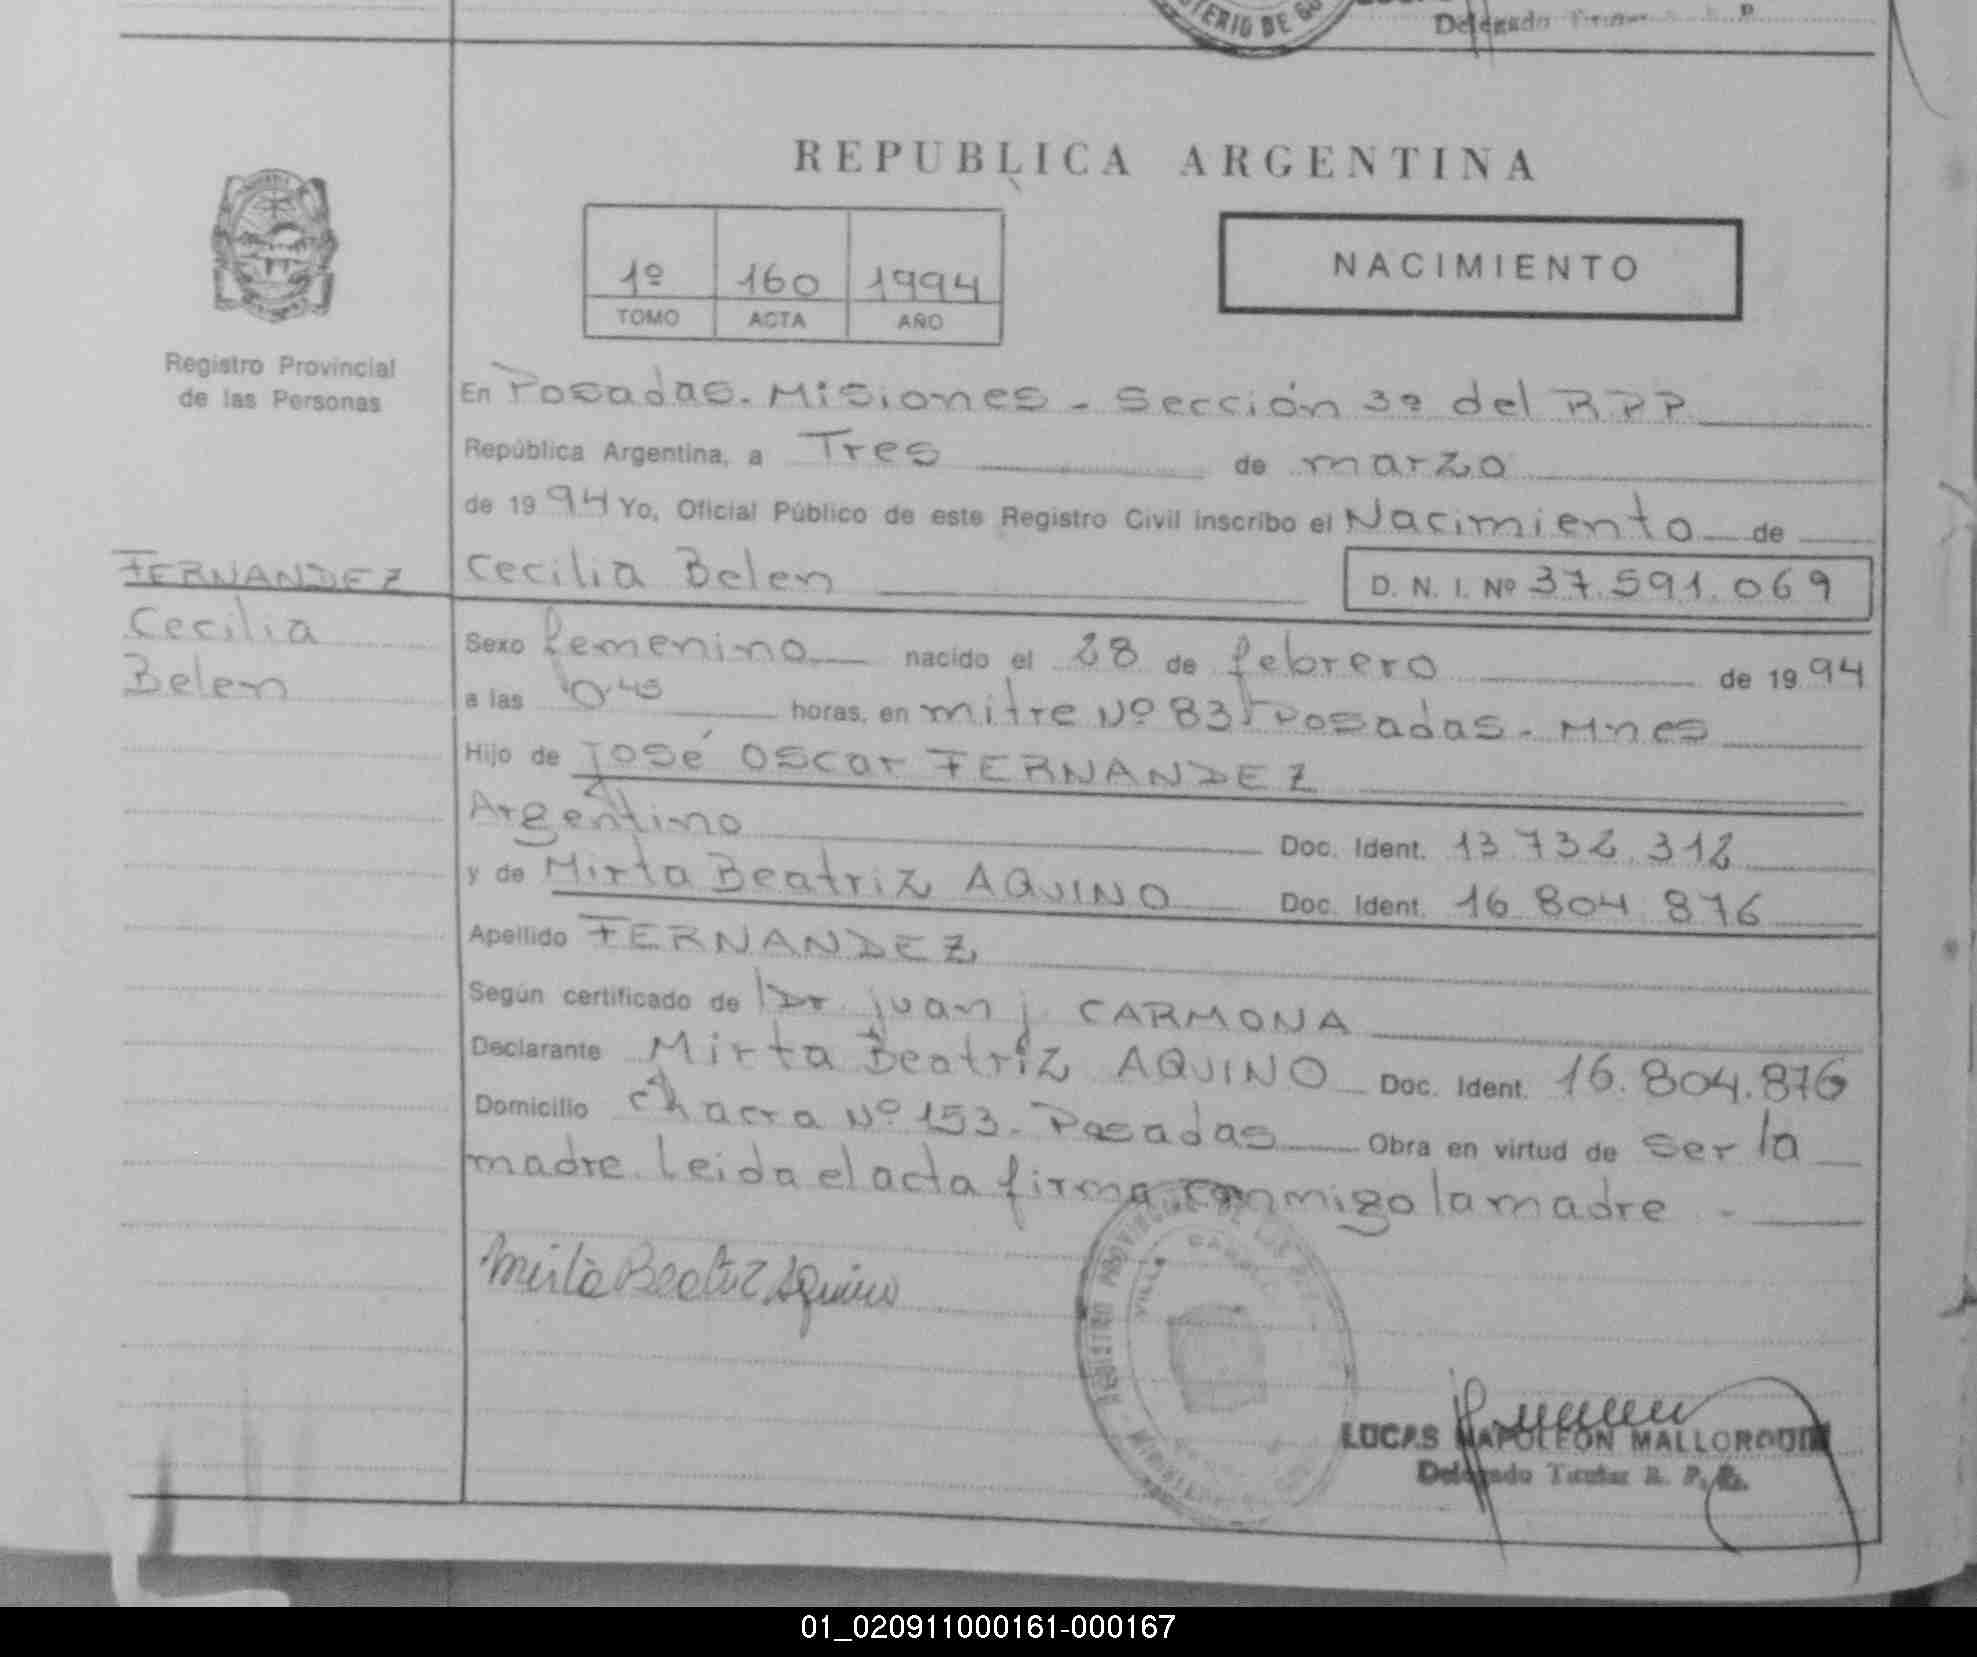 TERIO DE GO
Delegado Titular
REPUBLICA ARGENTINA
1º 160 1994
TOMO ACTA AÑO
NACIMIENTO
Registro Provincial
de las Personas
En Posadas. Misiones - Sección 3º del RPP
República Argentina, a Tres de marzo
de 1994 Yo, Oficial Público de este Registro Civil inscribo el Nacimiento de
FERNANDEZ
Cecilia
Belen
Cecilia Belen
D. N. I. Nº 37.591.069
Sexo femenino nacido el 28 de febrero de 1994
a las 0.45 horas, en mitre Nº 83 Posadas - Mnes
Hijo de José Oscar FERNANDEZ
Argentino Doc. Ident. 13 732.312
y de Mirta Beatriz AQUINO Doc. Ident. 16 804 876
Apellido FERNANDEZ
Según certificado de Dr. juan j. CARMONA
Declarante Mirta Beatriz AQUINO Doc. Ident. 16.804.876
Domicilio Chacra Nº 153 - Posadas Obra en virtud de ser la
madre. Leida el acta firma conmigo la madre -
Mirta Beatriz Aquino
REGISTRO PROVINCIAL DE LAS
VILLA CABELLO
LUCAS NAPOLEON MALLORQUIN
Delegado Titular R. P. P.
01_020911000161-000167